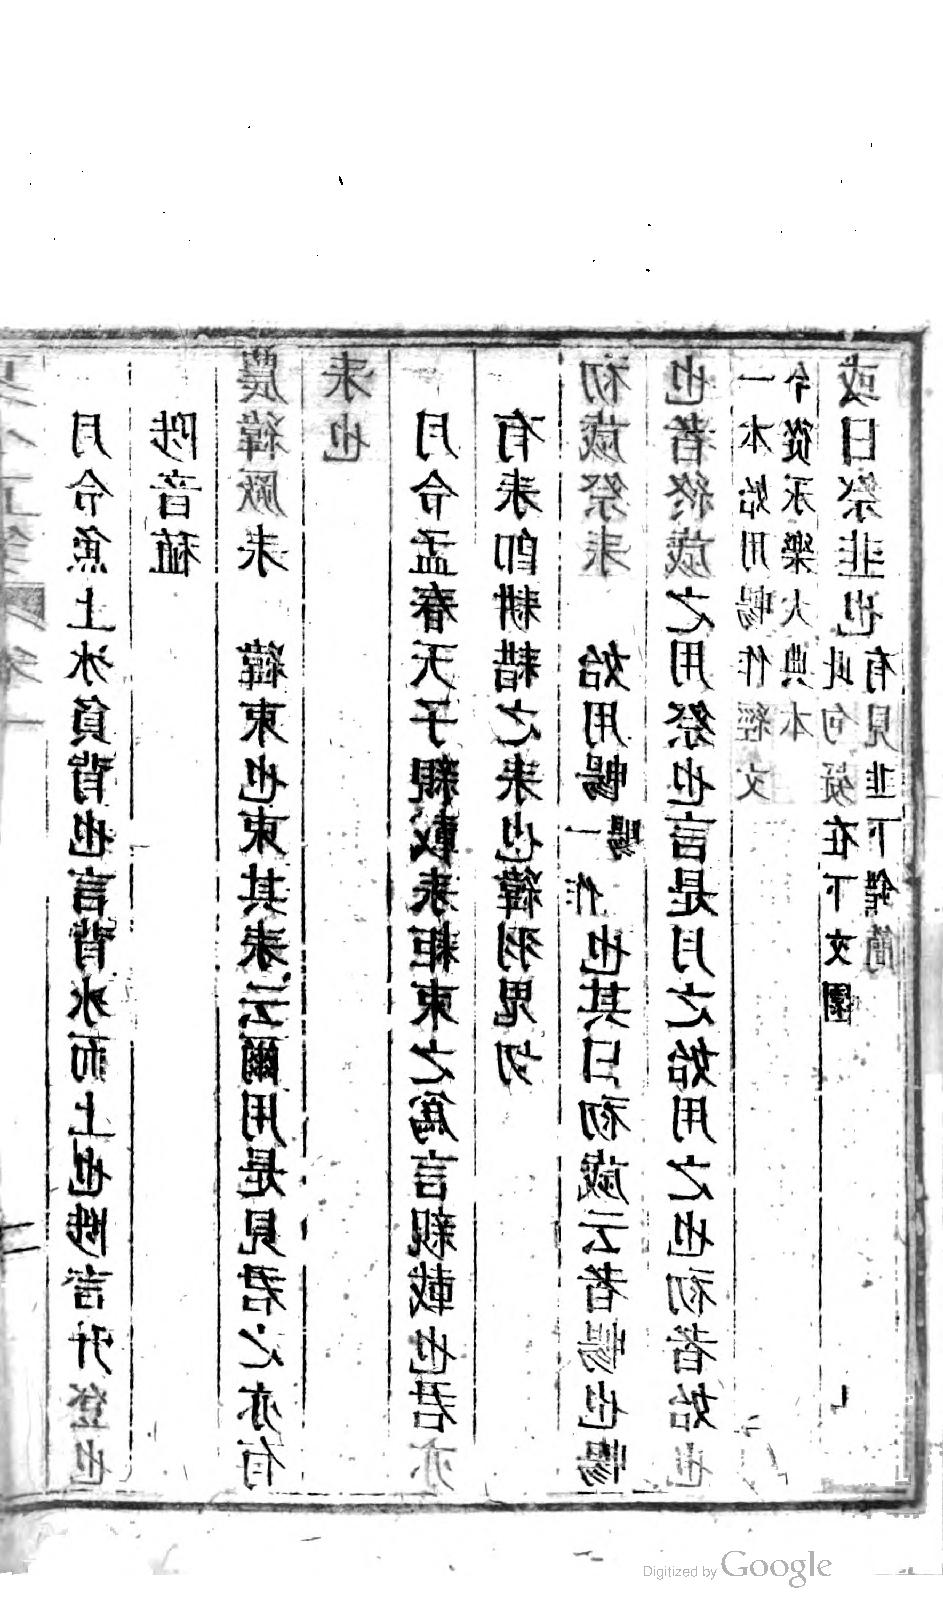 月令魚上冰負背也言背冰而上也陟言升登也
陟音稙
農緯厥耒　緯束也束其耒云爾用是見君之亦有
耒也
月令孟春天子親載耒耜束之為言親載也君亦
有耒即耕耤之耒也緯羽鬼切
初歲祭耒　始用暢一作暢也其曰初歲云者暢也暢
也者終歲之用祭也言是月之始用之也初者始也
一本始用暢作經文
今從永樂大典本
或曰祭韭也此句疑在下文囿
有見韭下錯簡
Digitized by Google